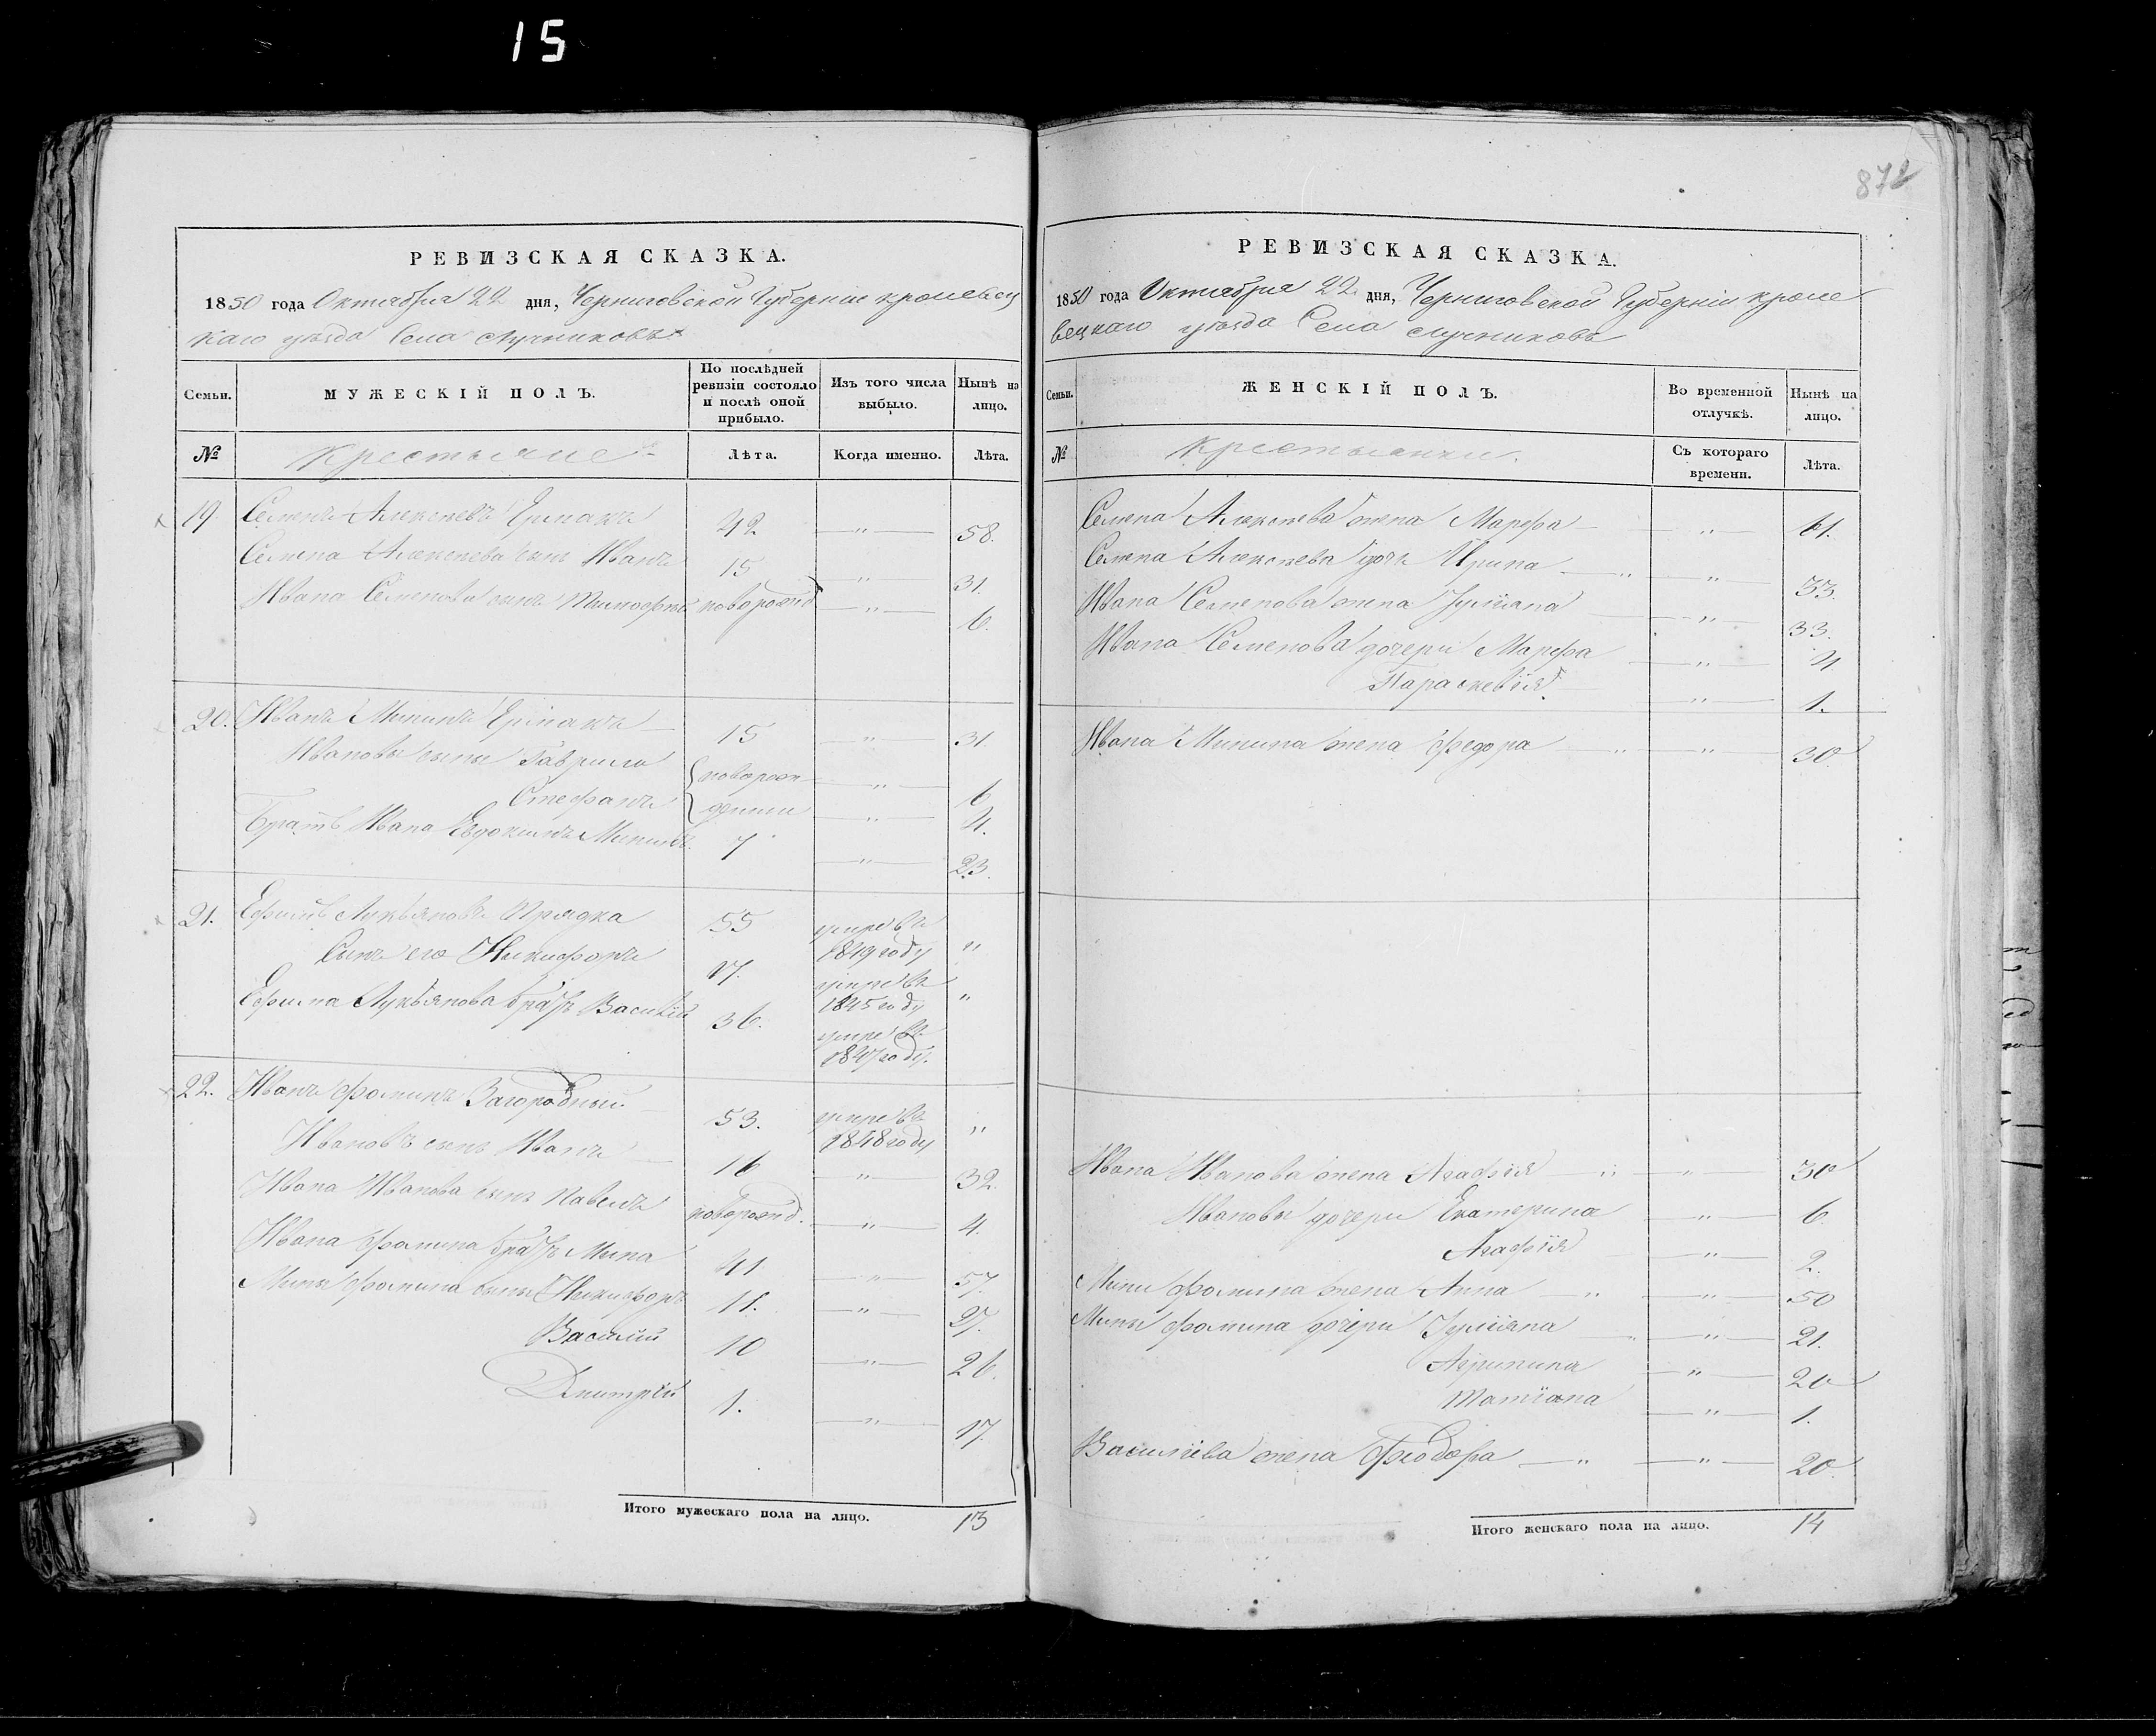 15
872
РЕВИЗСКАЯ СКАЗКА.
1850 года Октября 22 дня, Черниговской Губерніи кролевец
каго уѣзда Села Лучниковъ
Семьи. МУЖЕСКІЙ ПОЛЪ. По послѣдней ревизіи состояло и послѣ оной прибыло. Изъ того числа выбыло. Нынѣ на лицо.
№ Крестьяне Лѣта. Когда именно. Лѣта.
19. Семенъ Алексѣевъ 42 — " — 58.
Семена Алексѣева сынъ Иванъ 15 — " — 31.
Ивана Семенова сынъ Тимофей новорожд — " — 6.
20. Иванъ Мининъ 15 — " — 31.
Ивановы сыны Гаврило { новорож — " — 6
Стефанъ { денни — " — 4.
Братъ Ивана Евдокимъ Мининъ. 7 — " — 23.
21. Ефимъ Лукьяновъ Прядка 55 умре въ 1849 году "
Сынъ его Никифоръ 17. умре въ 1845 году "
Ефима Лукьянова братъ Василій 36. умре въ 1847 году.
22. Иванъ Фоминъ Загородный 53. умре въ 1848 году "
Ивановъ сынъ Иванъ 16 — " — 32.
Ивана Иванова сынъ Павелъ новорожд. — " — 4.
Ивана Фомина братъ Мина 41 — " — 57.
Мины Фомина сыны Никифоръ 11. — " — 27.
Василий 10 — " — 26.
Дмитрій 1. — " — 17.
Итого мужескаго пола на лицо. 13
РЕВИЗСКАЯ СКАЗКА.
1850 года Октября 22 дня, Черниговской Губерніи кроле
вецкаго уѣзда Села Лучниковъ
Семьи. ЖЕНСКІЙ ПОЛЪ. Во временной отлучкѣ. Нынѣ на лицо.
№ Крестьянки. Съ котораго времени. Лѣта.
Семена Алексѣева жена Марфа — " — 61.
Семена Алексѣева дочь Ирина — " — " — 33.
Ивана Семенова жена Іуліяна — " — 33.
Ивана Семенова дочери Марфа — " — 4
Параскевія — " — 1.
Ивана Минина жена Федора — " — " — 30
Ивана Иванова жена Агафія — " — " — 30
Ивановы дочери Екатерина — " — 6
Агафія — " — 2.
Мины Фомина жена Анна — " — " — 50
Мины Фомина дочери Іуліяна — " — " — 21.
Агрипина — " — 20
Татіана — " — 1.
Василіева жена Феодора — " — " — 20
Итого женскаго пола на лицо. 14